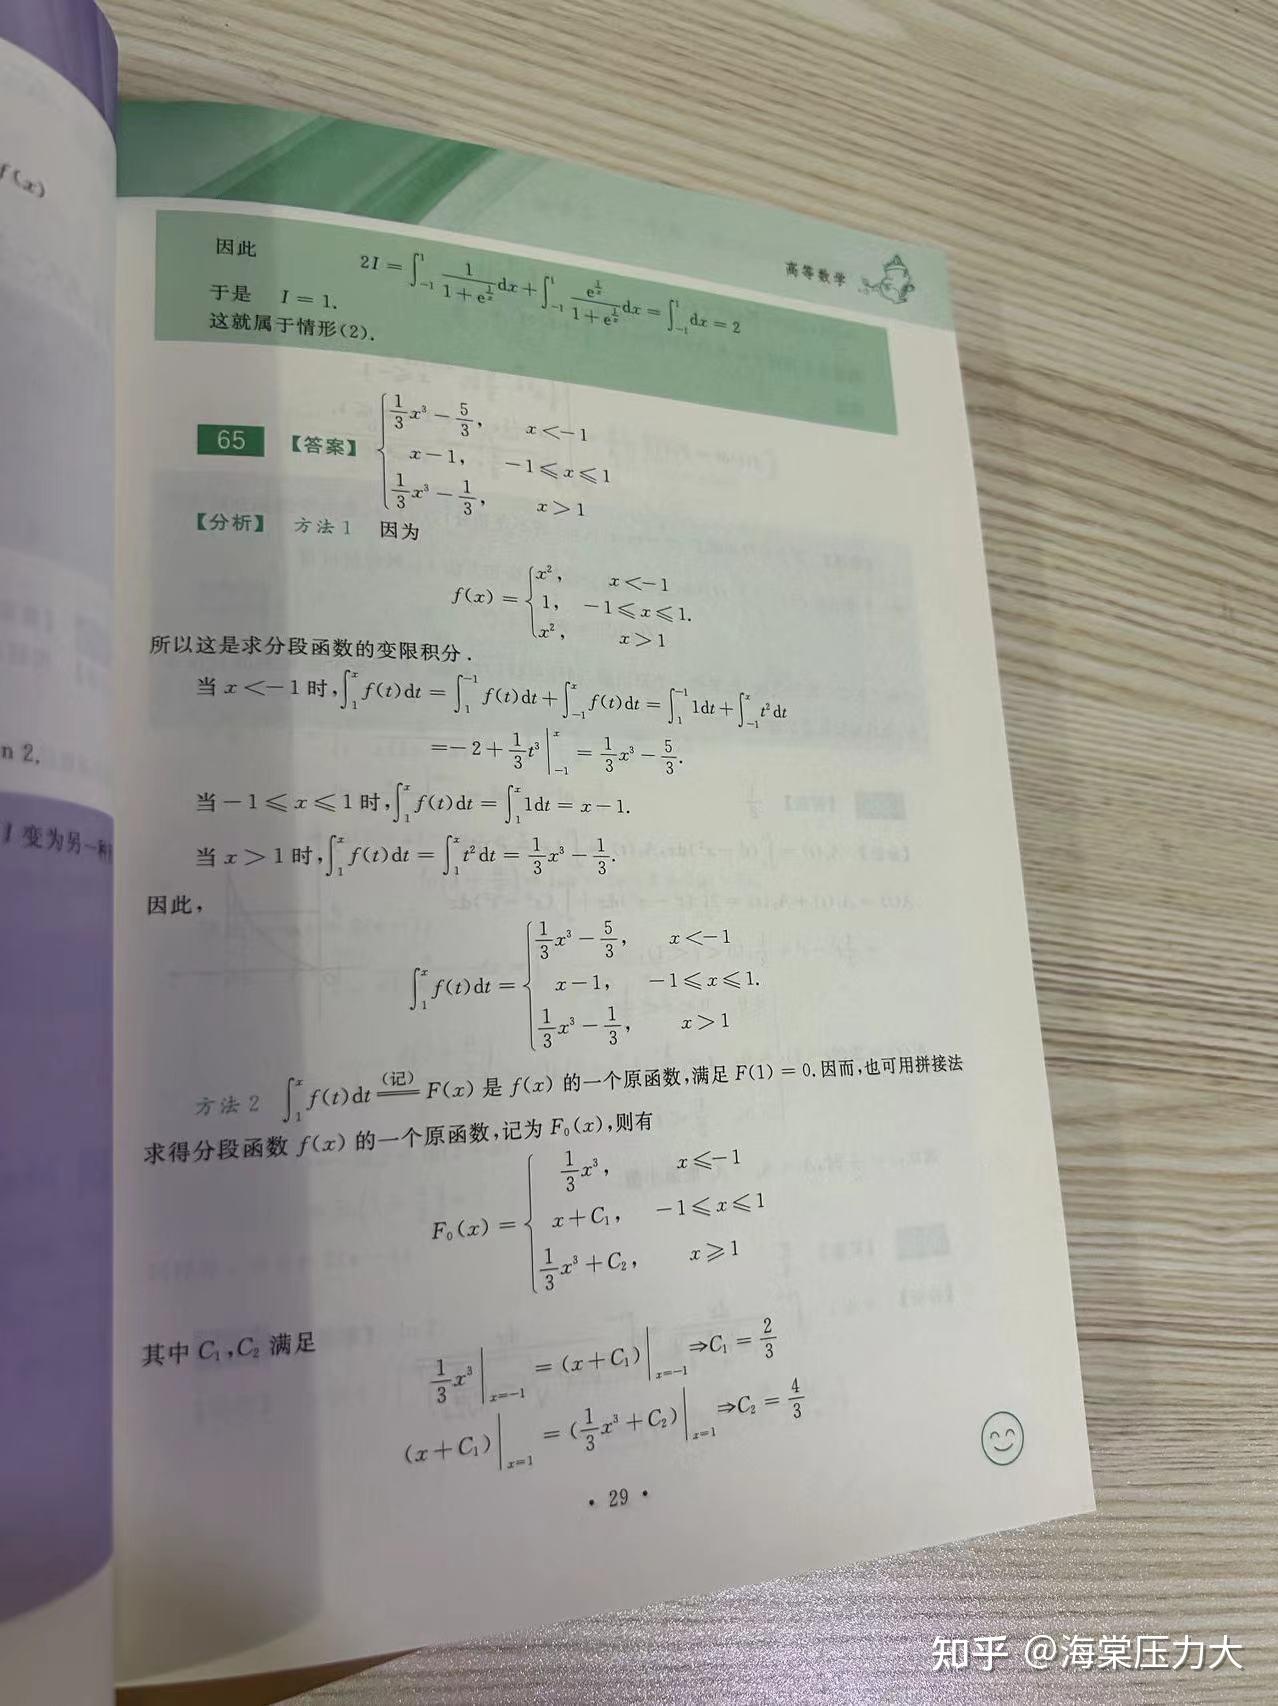 f(x)
n 2,
I 变为另一种
高等数学
因此 2I = ∫_{-1}^{1} 1/(1+e^{1/x}) dx + ∫_{-1}^{1} e^{1/x}/(1+e^{1/x}) dx = ∫_{-1}^{1} dx = 2
于是 I = 1.
这就属于情形(2).
65 【答案】 { 1/3 x³ − 5/3, x < −1
x − 1, −1 ⩽ x ⩽ 1
1/3 x³ − 1/3, x > 1
【分析】 方法 1 因为
f(x) = { x², x < −1
1, −1 ⩽ x ⩽ 1.
x², x > 1
所以这是求分段函数的变限积分.
当 x < −1 时, ∫_1^x f(t)dt = ∫_1^{-1} f(t)dt + ∫_{-1}^x f(t)dt = ∫_1^{-1} 1dt + ∫_{-1}^x t²dt
= −2 + 1/3 t³ |_{-1}^x = 1/3 x³ − 5/3.
当 −1 ⩽ x ⩽ 1 时, ∫_1^x f(t)dt = ∫_1^x 1dt = x − 1.
当 x > 1 时, ∫_1^x f(t)dt = ∫_1^x t²dt = 1/3 x³ − 1/3.
因此,
∫_1^x f(t)dt = { 1/3 x³ − 5/3, x < −1
x − 1, −1 ⩽ x ⩽ 1.
1/3 x³ − 1/3, x > 1
方法 2 ∫_1^x f(t)dt (记)== F(x) 是 f(x) 的一个原函数,满足 F(1) = 0.因而,也可用拼接法
求得分段函数 f(x) 的一个原函数,记为 F₀(x),则有
F₀(x) = { 1/3 x³, x ⩽ −1
x + C₁, −1 ⩽ x ⩽ 1
1/3 x³ + C₂, x ⩾ 1
其中 C₁,C₂ 满足
1/3 x³ |_{x=−1} = (x + C₁) |_{x=−1} ⇒ C₁ = 2/3
(x + C₁) |_{x=1} = (1/3 x³ + C₂) |_{x=1} ⇒ C₂ = 4/3
· 29 ·
知乎 @海棠压力大